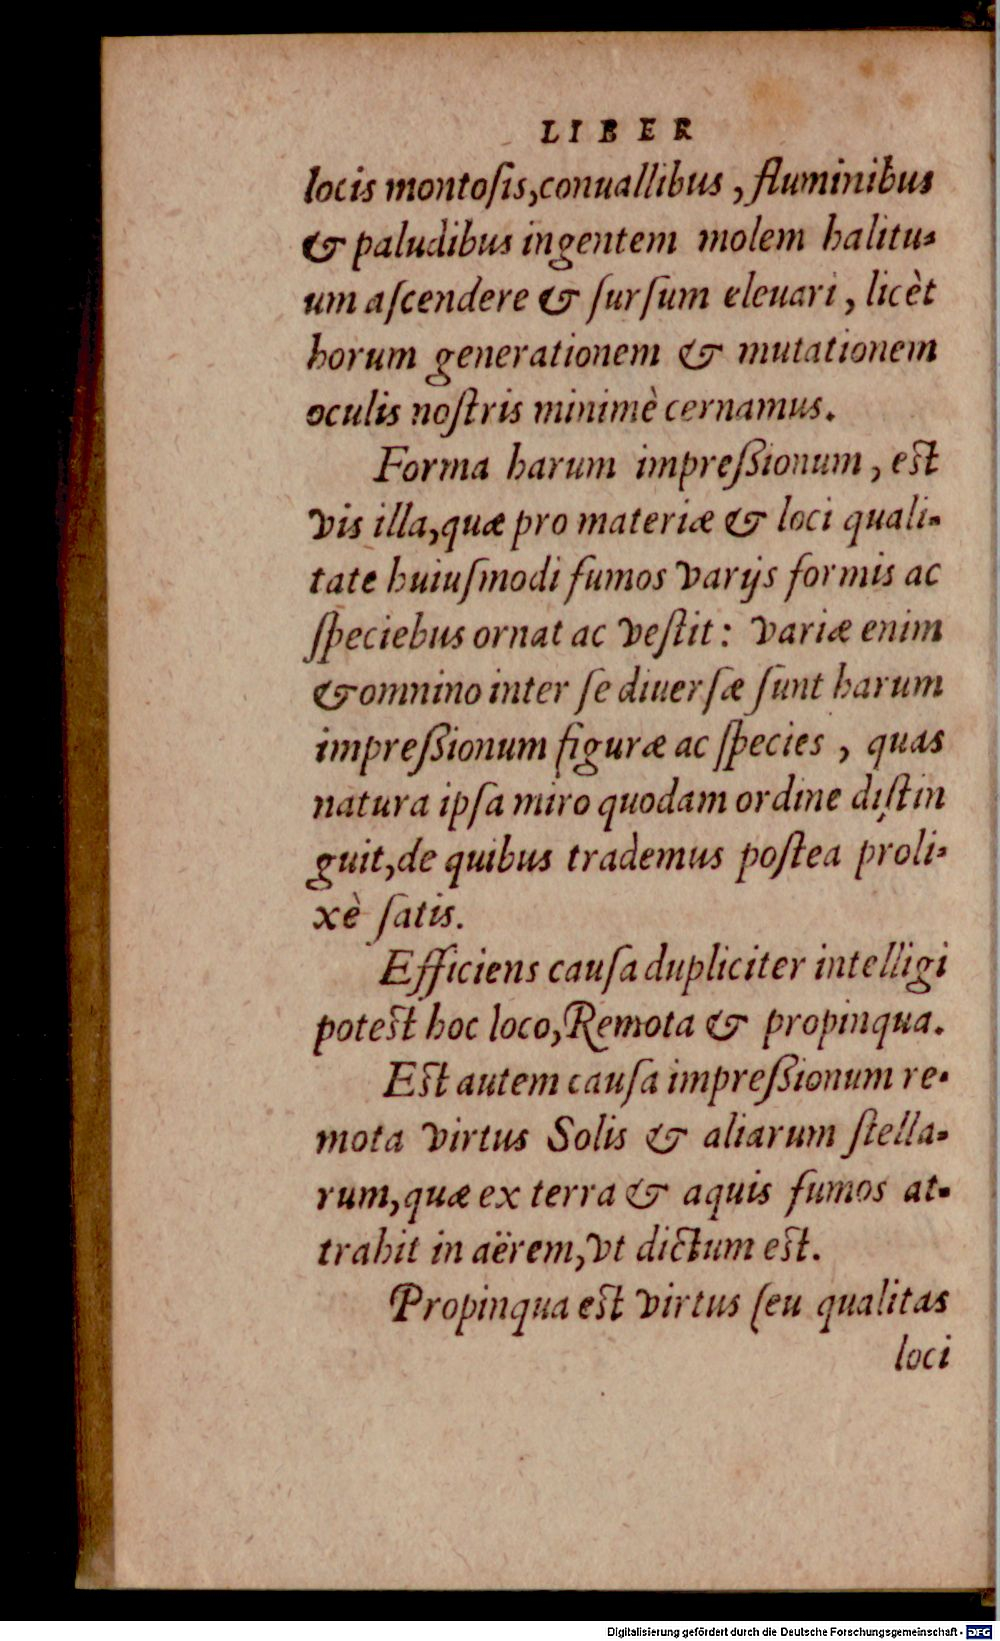 LIBER
locis montoſis,conuallibus , fluminibus
& paludibus ingentem molem halitu-
um aſcendere & ſurſum eleuari , licèt
horum generationem & mutationem
oculis noſtris minimè cernamus.
Forma harum impreßionum , eſt
vis illa,quæ pro materiæ & loci quali-
tate huiuſmodi fumos varijs formis ac
ſpeciebus ornat ac veſtit : variæ enim
& omnino inter ſe diuerſæ ſunt harum
impreßionum figuræ ac ſpecies , quas
natura ipſa miro quodam ordine diſtin
guit,de quibus trademus poſtea proli-
xè ſatis.
Efficiens cauſa dupliciter intelligi
poteſt hoc loco,Remota & propinqua.
Eſt autem cauſa impreßionum re-
mota virtus Solis & aliarum ſtella-
rum,quæ ex terra & aquis fumos at-
trahit in aërem,vt dictum eſt.
Propinqua eſt virtus ſeu qualitas
loci
Digitalisierung gefördert durch die Deutsche Forschungsgemeinschaft - DFG